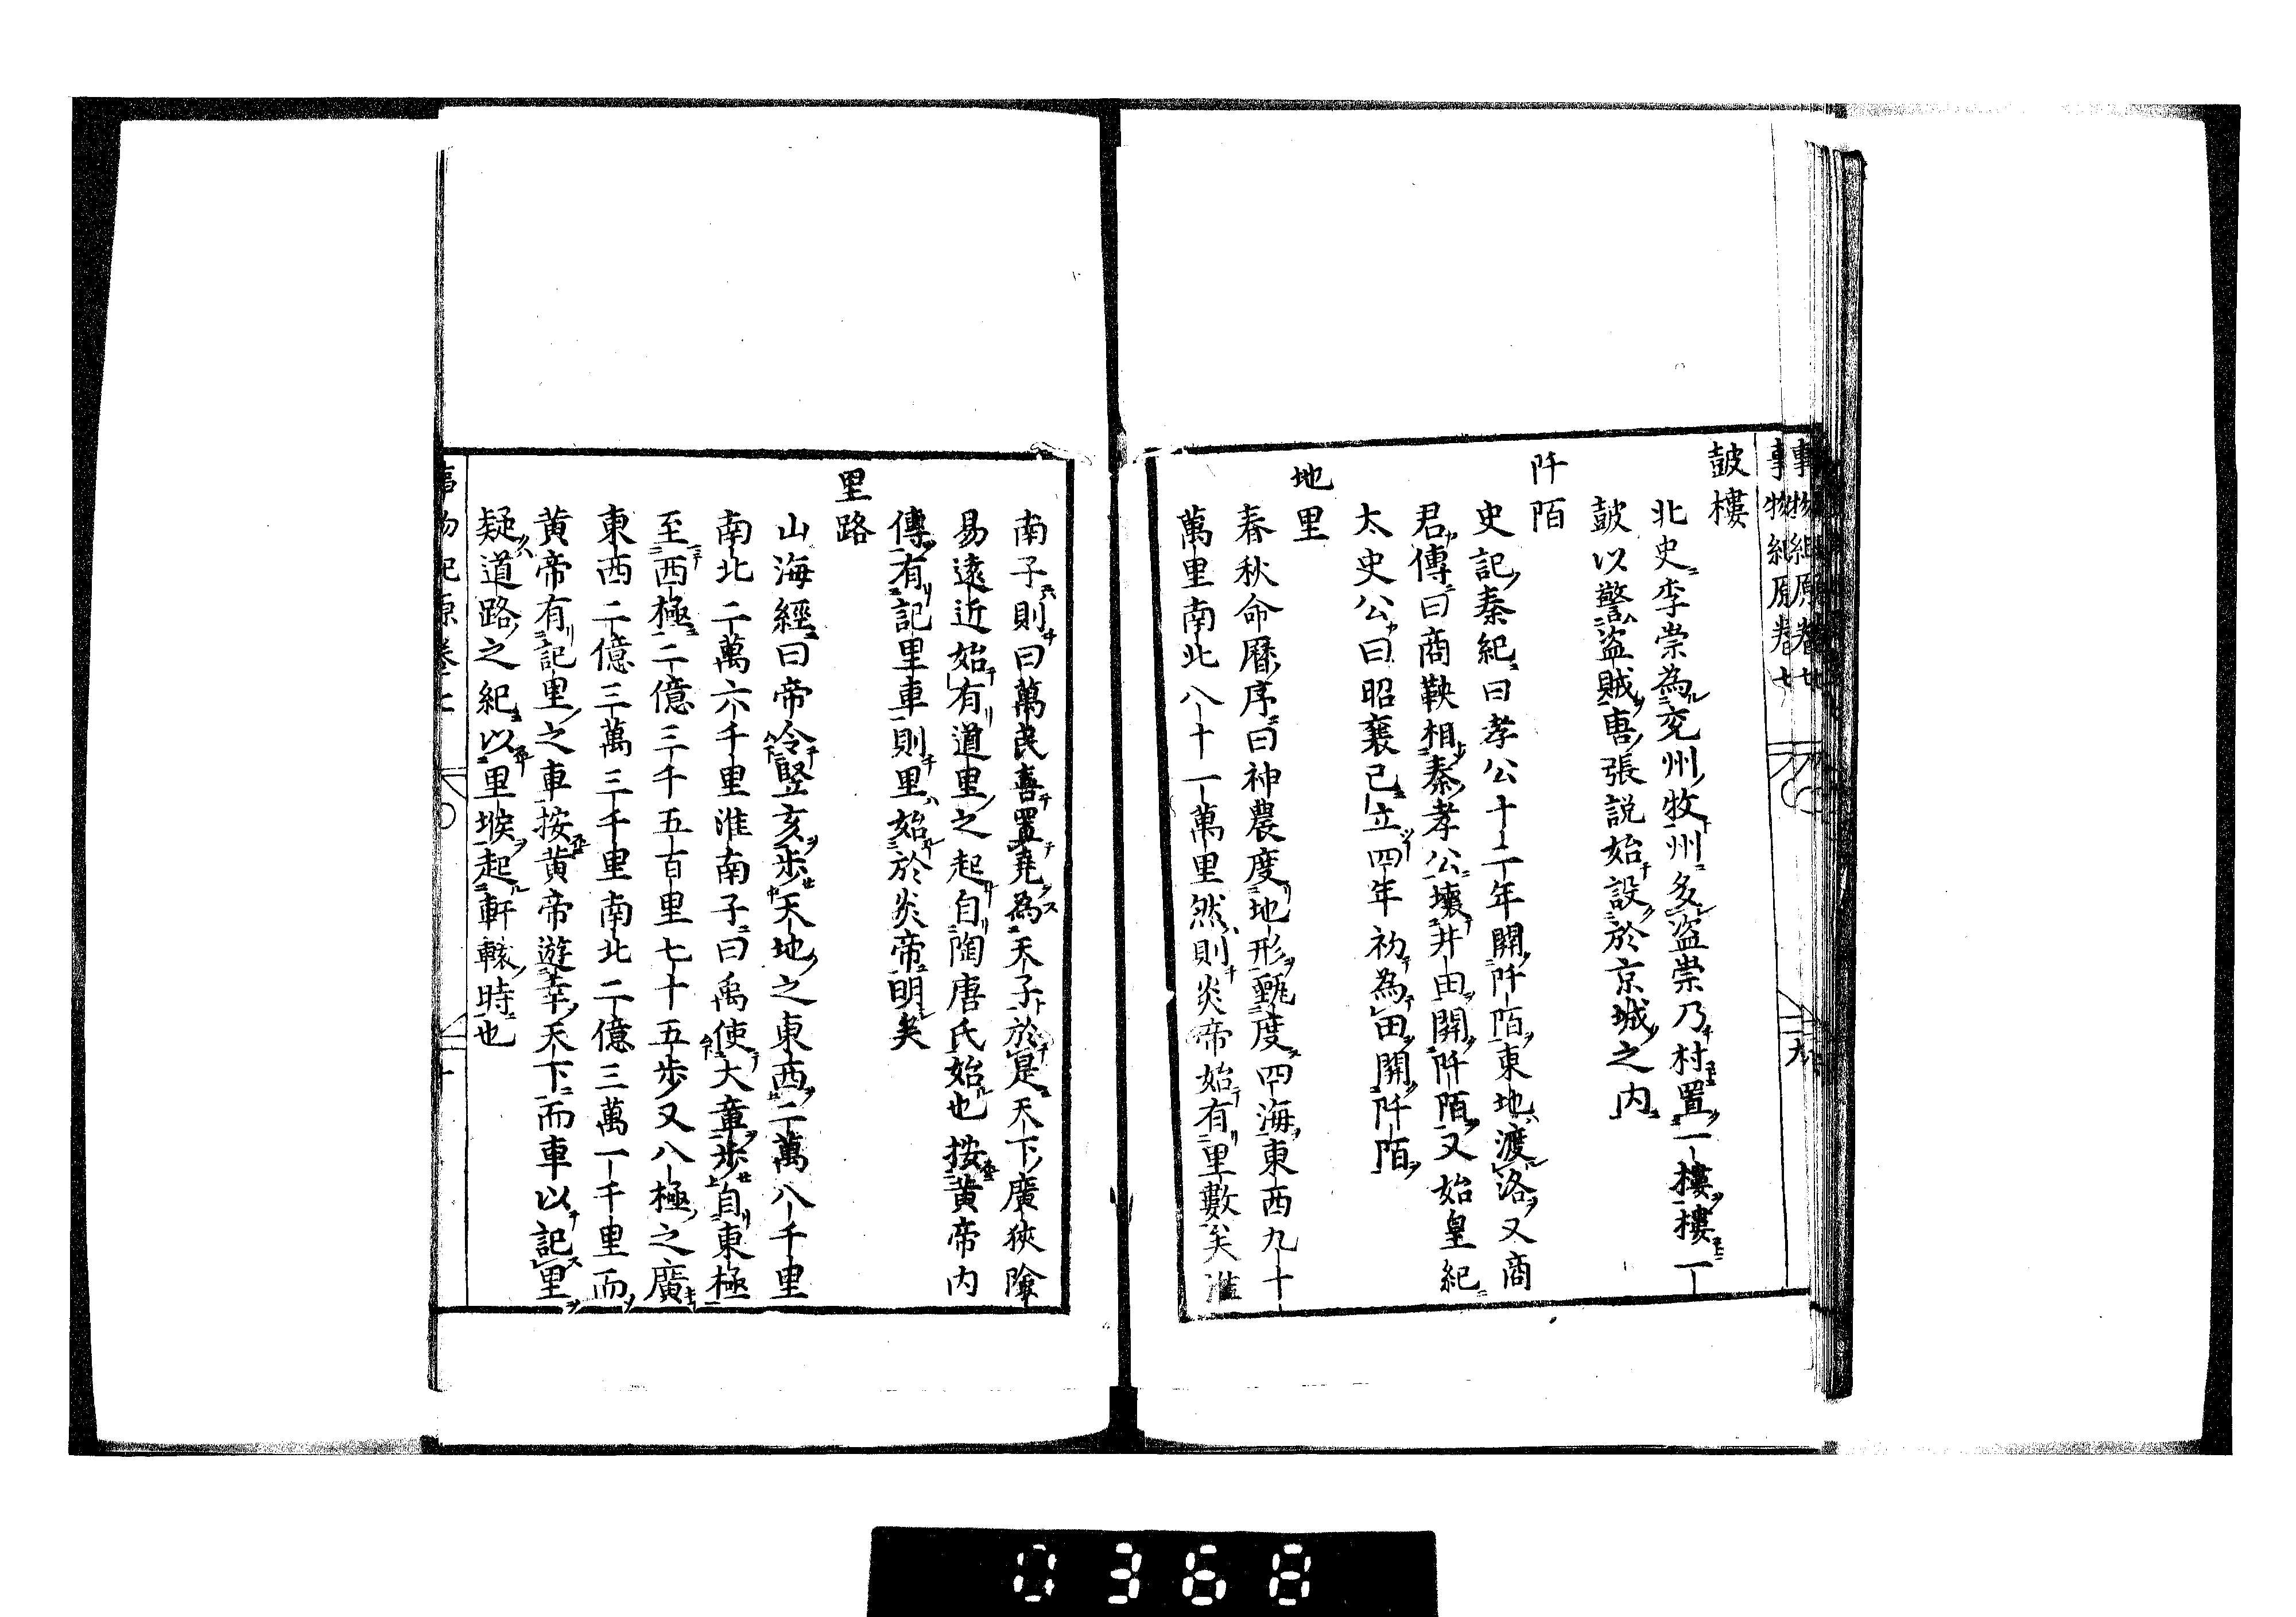 事物紀原卷七
九
皷樓
北史李崇為兖州牧州多盗崇乃村置一樓樓一
皷以警盗賊唐張説始設於京城之内
阡陌
史記秦紀曰孝公十二年開阡陌東地渡洛又商
君傳曰商鞅相秦孝公壊井田開阡陌又始皇紀
太史公曰昭襄已立四年初為田開阡陌
地里
春秋命曆序曰神農度地形甄度四海東西九十
萬里南北八十一萬里然則炎帝始有里數矣淮
南子則曰萬民喜置堯為天子於是天下廣狹險
易遠近始有道里之起自陶唐氏始也按黄帝内
傳有記里車則里始於炎帝明矣
里路
山海經曰帝令竪亥步天地之東西二萬八千里
南北二萬六千里淮南子曰禹使大章步自東極
至西極二億三千五百里七十五步又八極之廣
東西二億三萬三千里南北二億三萬一千里而
黄帝有記里之車按黄帝遊幸天下而車以記里
疑道路之紀以里堠起軒轅時也
事物紀原卷七
0368